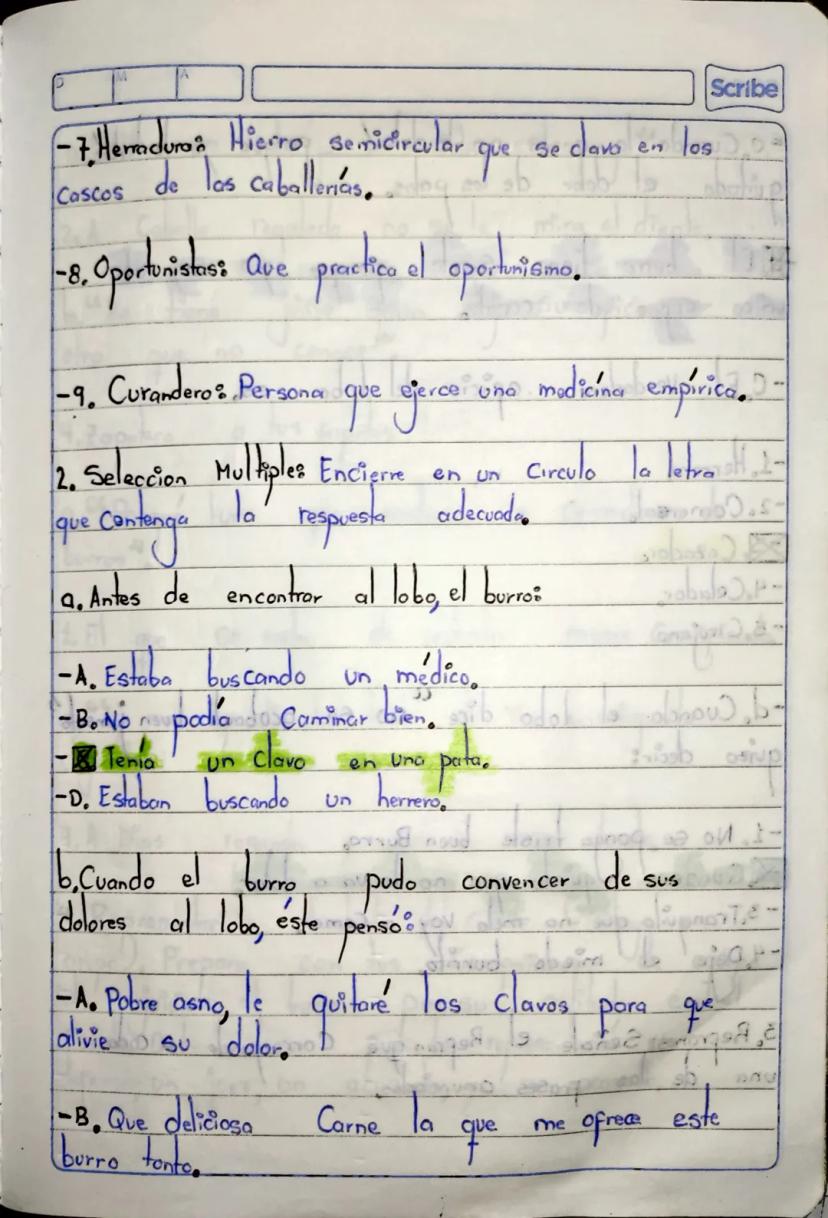 D M A
Scribe
-7. Herradura: Hierro semicircular que se clava en los
cascos de las caballerías.
-8. Oportunistas: Que practica el oportunismo.
-9. Curandero: Persona que ejerce una medicína empírica.
2. Seleccion Multiple: Encierre en un circulo la letra
que contenga la respuesta adecuada.
a. Antes de encontrar al lobo, el burro:
-A. Estaba buscando un médico.
-B. No podía caminar bien.
- Tenía un clavo en una pata.
-D. Estaban buscando un herrero.
b. Cuando el burro pudo convencer de sus
dolores al lobo, éste pensó:
-A. Pobre asno, le quitaré los clavos para que
alivie su dolor.
-B. Que deliciosa carne la que me ofrece este
burro tonto.